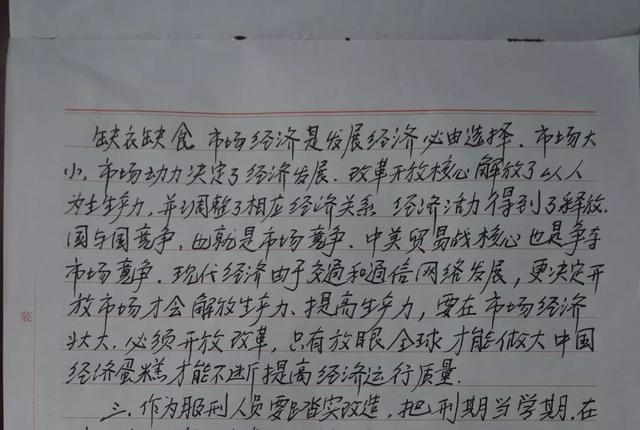 缺衣缺食. 市场经济是发展经济必由选择. 市场大
小, 市场动力决定了经济发展. 改革开放核心解放了以人
为主生产力, 并调整了相应经济关系 经济活力得到了释放.
国与国竞争, 也就是市场竞争. 中美贸易战核心也是争夺
市场竞争. 现代经济由于交通和通信网络发展, 更决定开
放市场才会解放生产力、提高生产力, 要在市场经济
壮大. 必须开放改革, 只有放眼全球才能做大中国
经济蛋糕才能不断提高经济运行质量.
三. 作为服刑人员要踏实改造, 把刑期当学期. 在
装